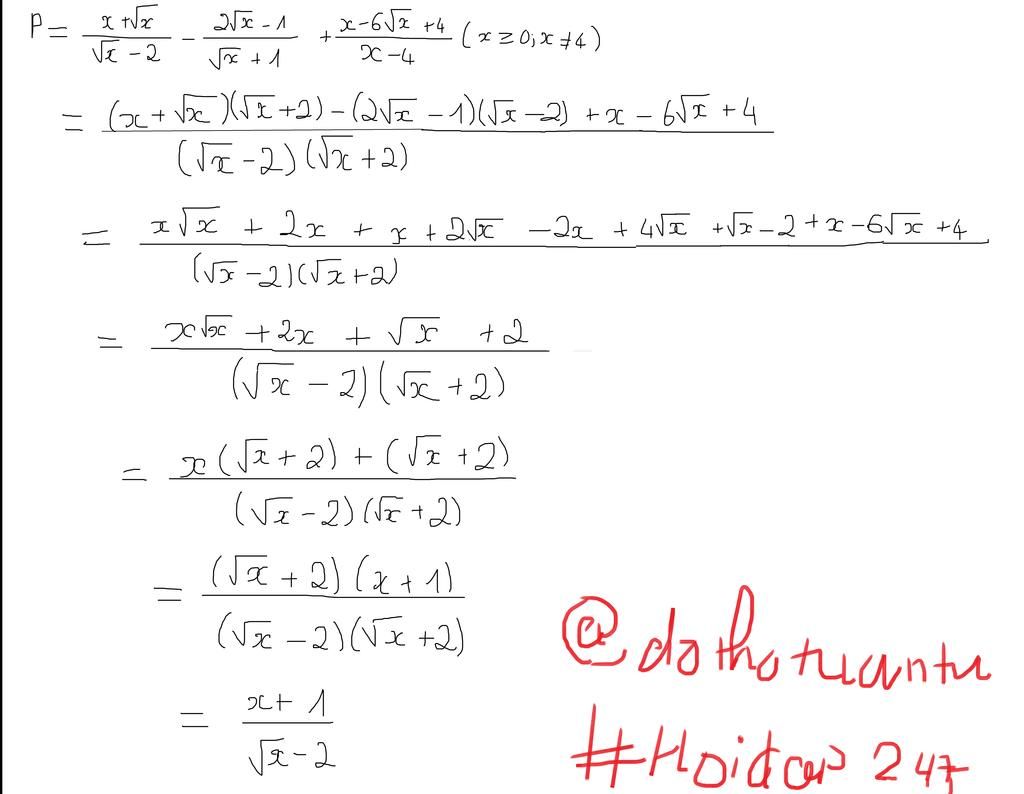 P = \frac{x+\sqrt{x}}{\sqrt{x}-2} - \frac{2\sqrt{x}-1}{\sqrt{x}+1} + \frac{x-6\sqrt{x}+4}{x-4} (x ≥ 0; x ≠ 4)
= \frac{(x+\sqrt{x})(\sqrt{x}+2)-(2\sqrt{x}-1)(\sqrt{x}-2)+x-6\sqrt{x}+4}{(\sqrt{x}-2)(\sqrt{x}+2)}
= \frac{x\sqrt{x}+2x+x+2\sqrt{x}-2x+4\sqrt{x}+\sqrt{x}-2+x-6\sqrt{x}+4}{(\sqrt{x}-2)(\sqrt{x}+2)}
= \frac{x\sqrt{x}+2x+\sqrt{x}+2}{(\sqrt{x}-2)(\sqrt{x}+2)}
= \frac{x(\sqrt{x}+2)+(\sqrt{x}+2)}{(\sqrt{x}-2)(\sqrt{x}+2)}
= \frac{(\sqrt{x}+2)(x+1)}{(\sqrt{x}-2)(\sqrt{x}+2)}
= \frac{x+1}{\sqrt{x}-2}
@dothotuantu
#Hoidap 247